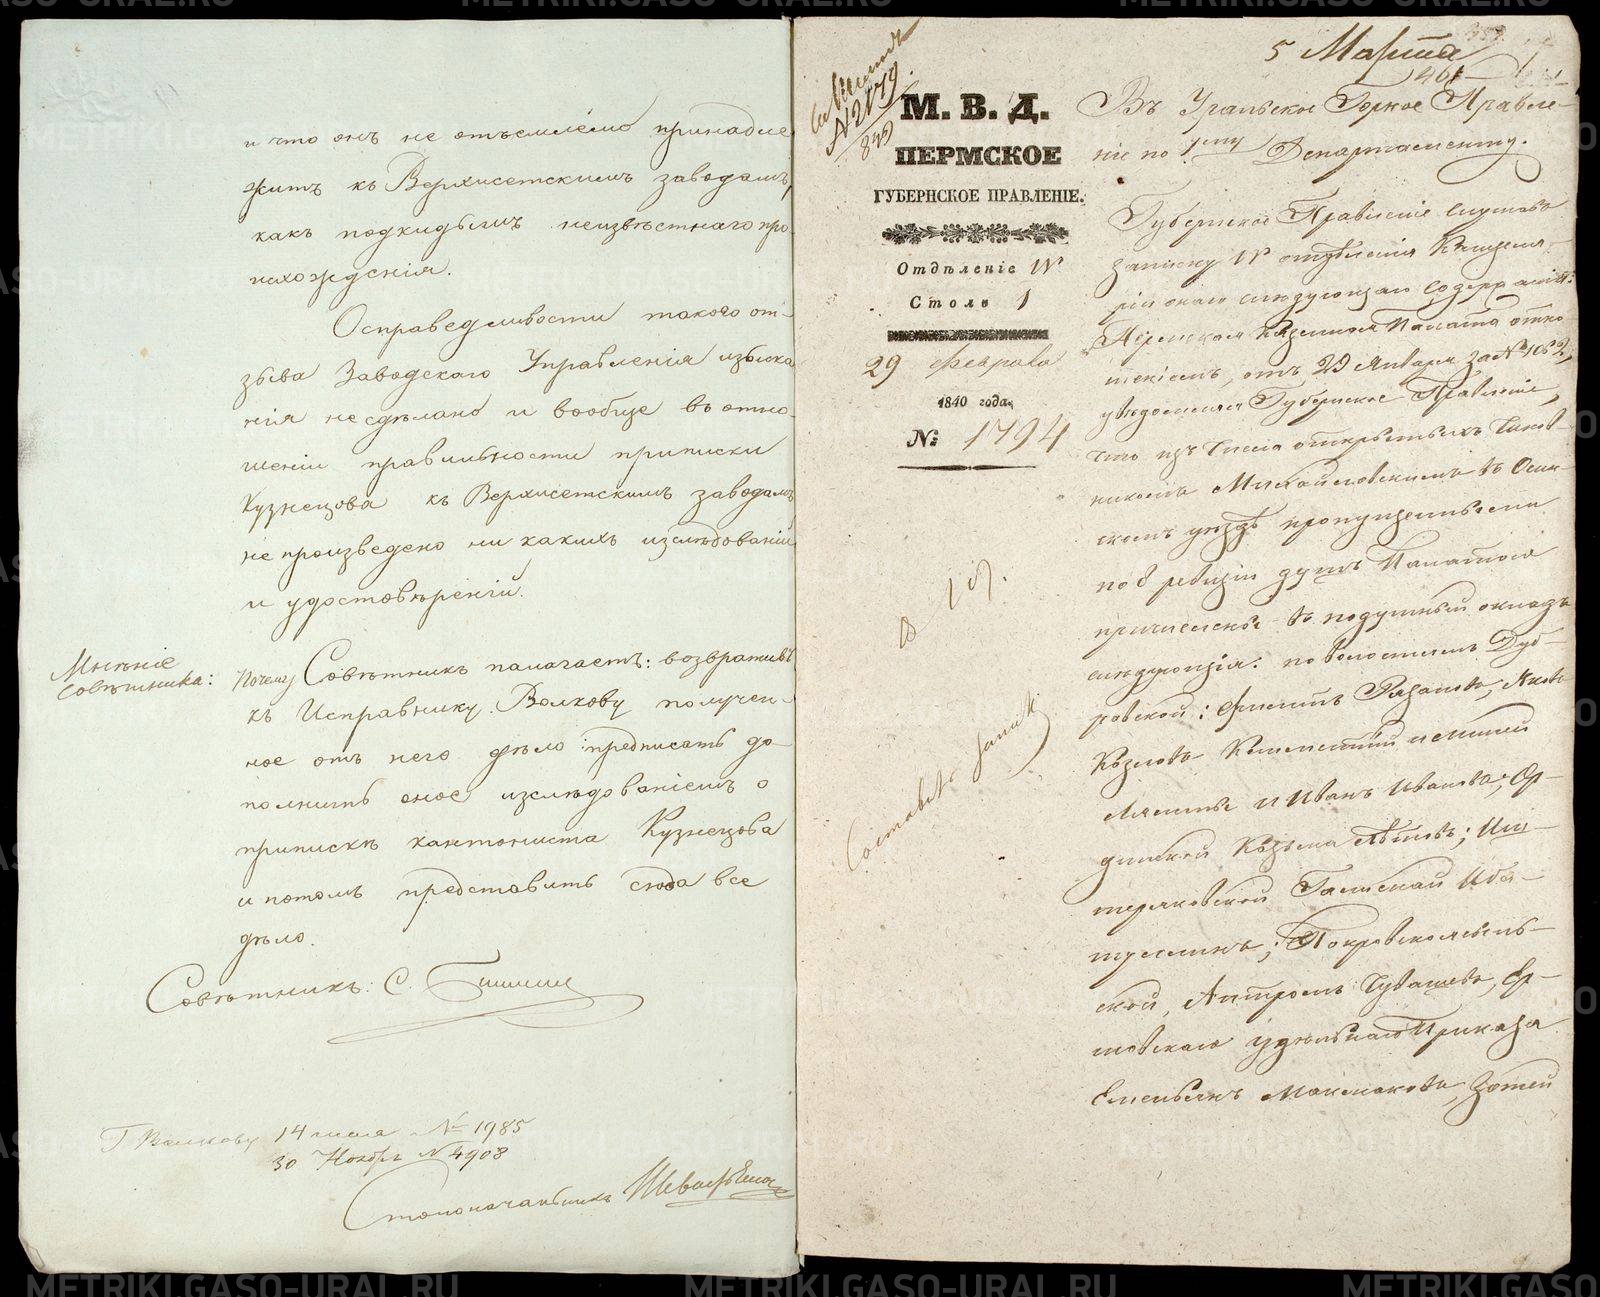 и что онъ не отъемлемо принадле
житъ къ Верхисетскимъ заводамъ,
какъ подкидышъ неизвѣстнаго про
исхожденія.
О справедливости такого от-
зыва Заводскаго Управленія изыска
нія не сдѣлано и вообще въ отно-
шеніи правильности приписки
Кузнецова къ Верхисетскимъ заводамъ
не произведено ни какихъ изслѣдованій
и удостовѣреній.
Мнѣніе
Совѣтника:
Почему Совѣтникъ полагаетъ: возвративъ
къ Исправнику Волкову получен-
ное отъ него дѣло предписать до-
полнить оное изслѣдованіемъ о
припискѣ кантониста Кузнецова
и потомъ представить сюда все
дѣло.
Совѣтникъ: С.
Г Волкову 14 июля № 1985
30 Ноябр № 4908
Столоначальникъ
5 Марта
№ 2179
М. В. Д.
ПЕРМСКОЕ
ГУБЕРНСКОЕ ПРАВЛЕНІЕ.
Отдѣленіе IV
Столъ 1
29 Февраля
1840 года
№ 1794
Составить записк
Въ Уральское Горное Правле-
ніе по 1му Департаменту.
Губернское Правленіе слушавъ
записку IV отдѣленія Канцеля-
ріи онаго слѣдующаго содержанія:
Пермская Казенная Палата отно
шеніемъ, отъ 29 Января за №
увѣдомляя Губернское Правленіе,
что изъ числа открытыхъ Чинов-
никомъ Михайловскимъ въ Осин-
скомъ уѣздѣ пропущенными
по 8 ревизіи душъ Палатою
причислены въ подушный окладъ
слѣдующія: по волостямъ Дуб-
ровской: Филипъ Рязановъ, Яковъ
Козловъ Климентій
и Иванъ Ивановы, Ор-
динской Козьма
Покровскоясыль-
ской, Антропъ Чувашевъ, Ор-
товскаго удѣльнаго Приказа
Емельянъ Зотей
METRIKI.GASO-URAL.RU